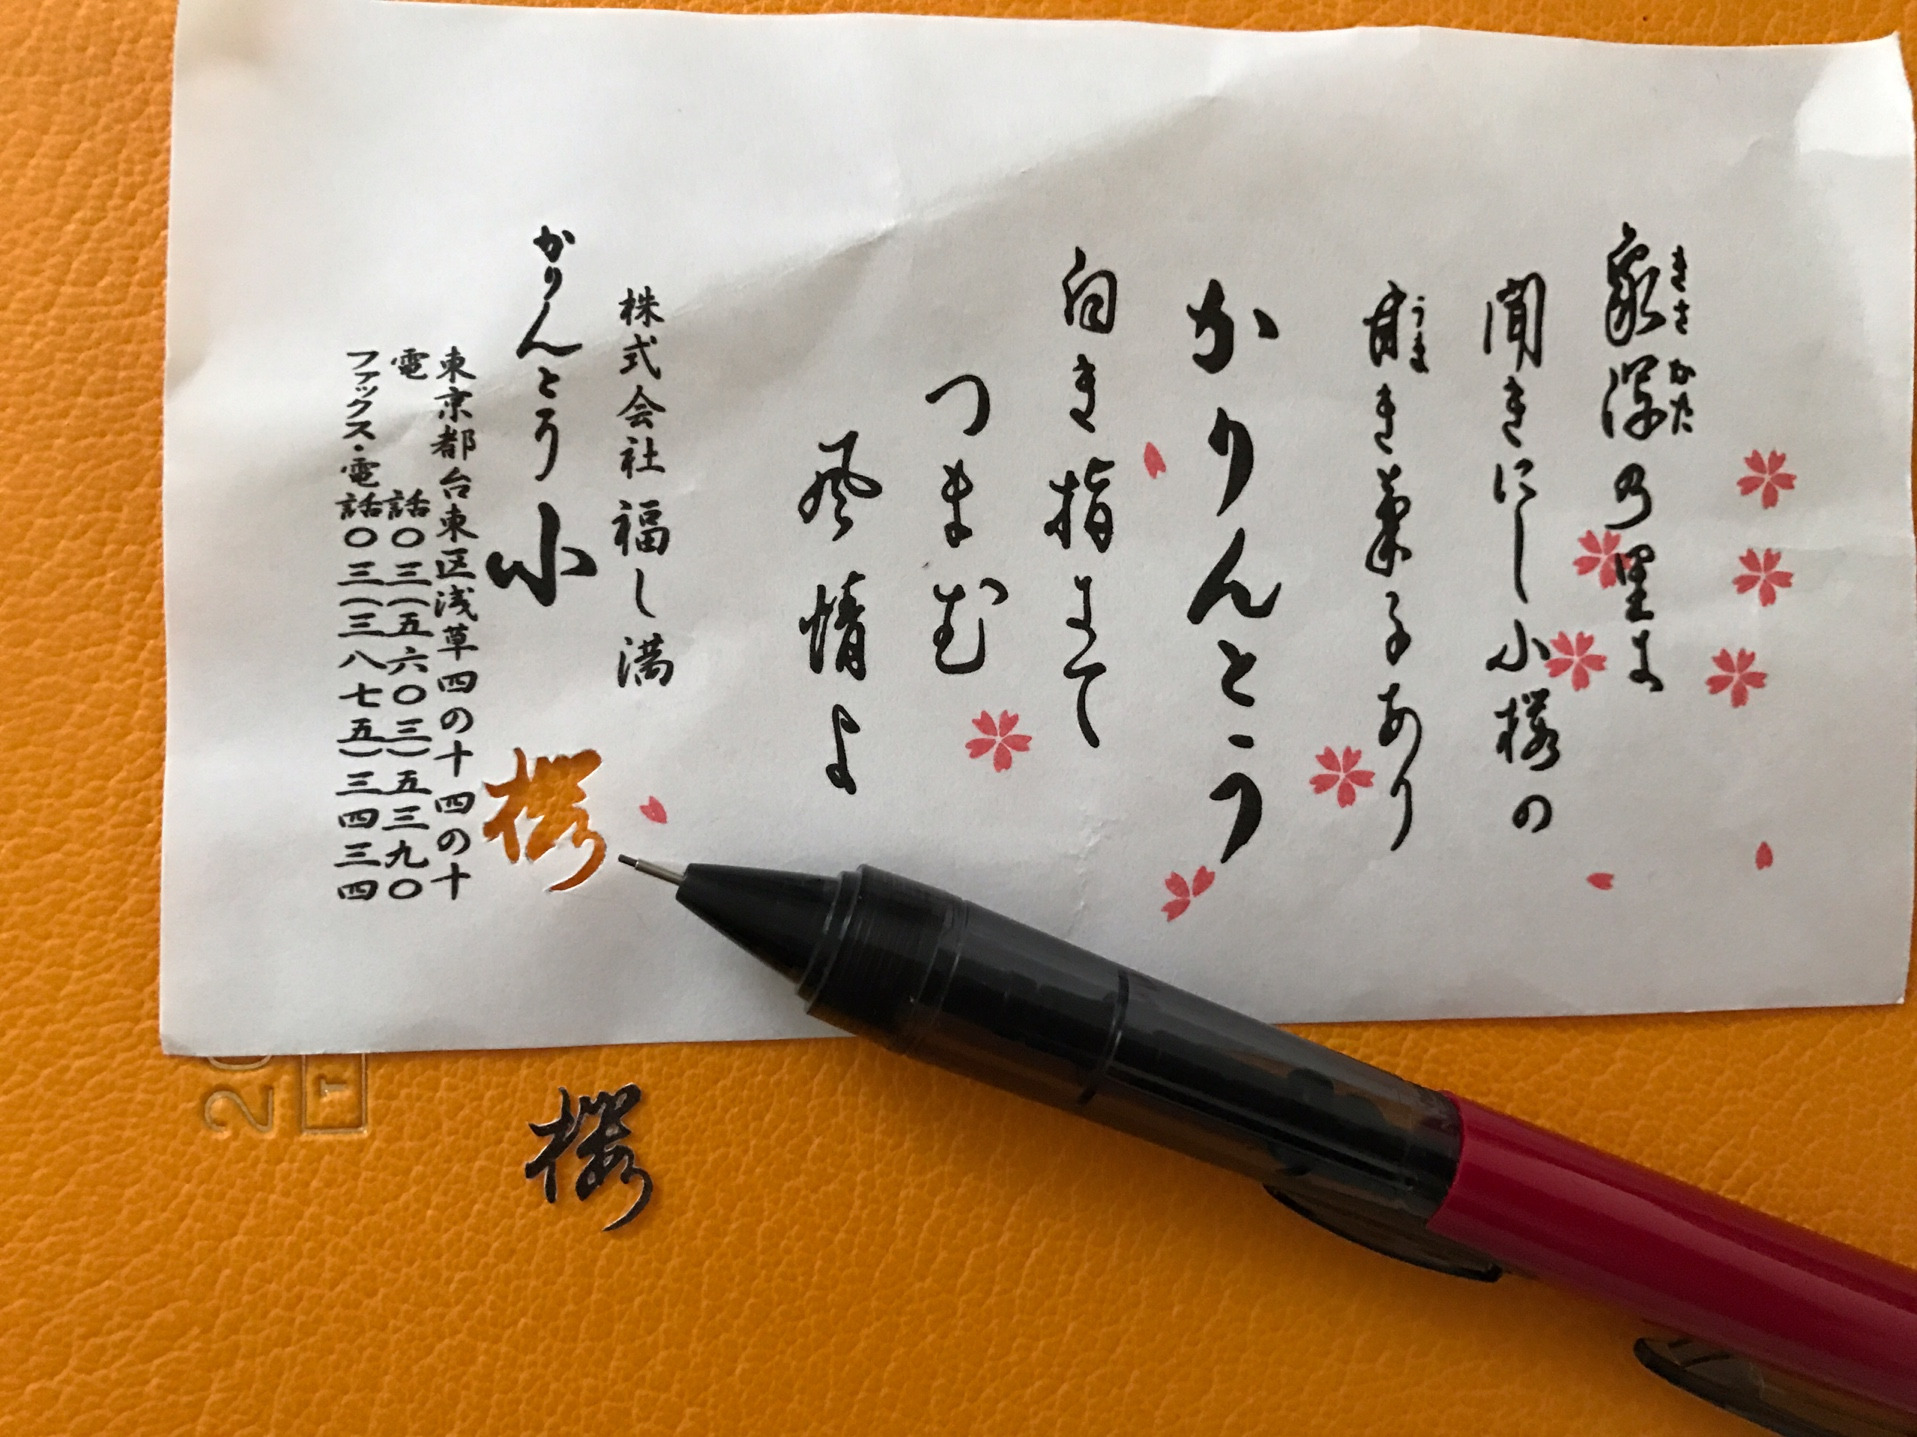 象潟の里に
きさかた
聞きにし小桜の
甘き菓子あり
うま
かりんとう
白き指にて
つまむ
風情よ
株式会社福し満
かりんとう小桜
東京都台東区浅草四の十四の十
電話〇三(五六〇三)五三九〇
ファックス・電話〇三(三八七五)三四三四
桜
20